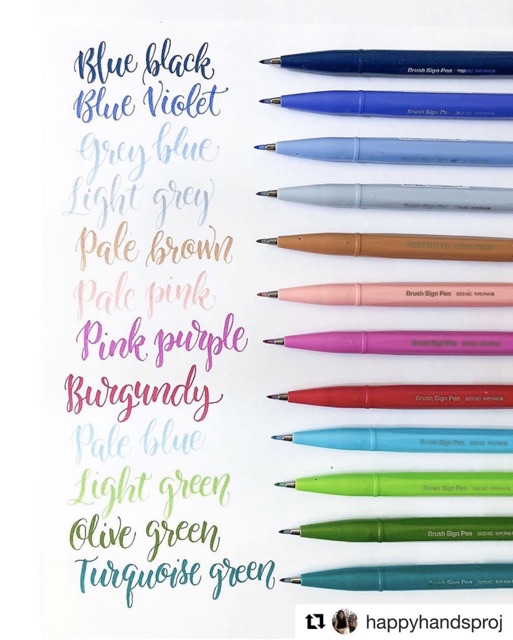 Blue black
Brush Sign Pen
Blue Violet
Brush Sign Pe
Grey blue
Light grey
Pale brown
Pale pink
Brush Sign Pen SES15C
Pink purple
Burgundy
Brush Sign Pen SES15C
Pale blue
Brush Sign Pen
Light green
Brush Sign Pen
Olive green
Brush Sign Pen SES15C
Turquoise green
Brush Sign Pen
happyhandsproj